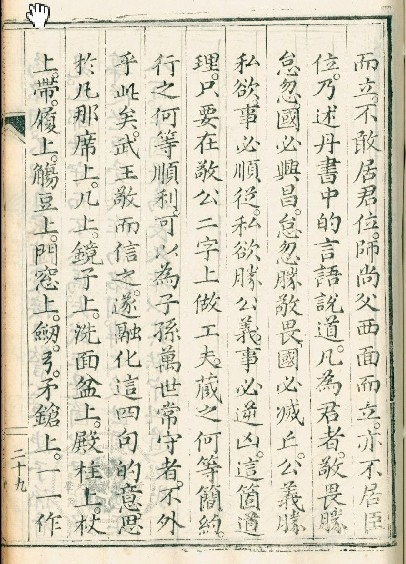 而立。不敢居君位。師尚父西面而立。亦不居臣
位。乃述丹書中的言語說道。凡為君者。敬畏勝
怠忽國必興昌。怠忽勝敬畏國必滅亡。公義勝
私欲。事必順從。私欲勝公義。事必逆凶。這箇道
理。只要在敬公二字上做工夫。藏之何等簡約。
行之何等順利。可以為子孫萬世常守者。不外
乎此矣。武王敬而信之。遂融化這四句的意思
於凡那席上。几上。鏡子上。洗面盆上。殿柱上。杖
上。帶。履上。觴豆上。門窓上。劒。弓。矛鎗上。一一作
二十九